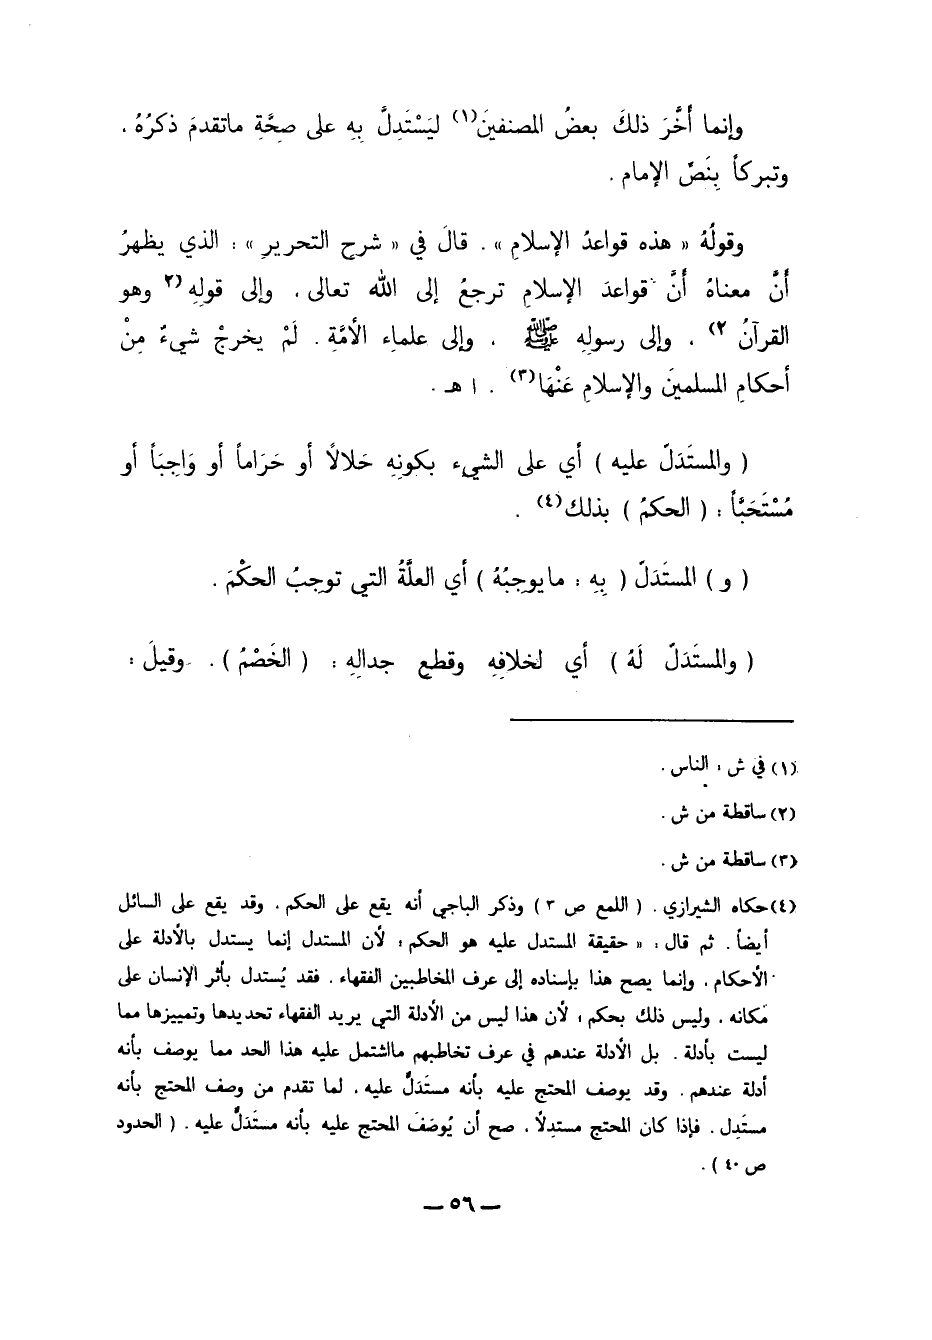 وإنما أَخَّرَ ذلكَ بعضُ المصنفينَ(١) ليَسْتَدِلَّ بِهِ على صحَّةِ ماتقدمَ ذكرُهُ ،
وتبركاً بِنَصِّ الإمام .
وقولُهُ « هذه قواعدُ الإسلامِ » . قالَ في « شرحِ التحريرِ » : الذي يظهرُ
أَنَّ معناهُ أنَّ قواعدَ الإسلامِ ترجعُ إلى الله تعالى ، وإلى قولِهِ (٢ وهو
القرآنُ ٢) ، وإلى رسولِهِ ﷺ ، وإلى علماءِ الأمَّةِ . لَمْ يخرجْ شيءٌ مِنْ
أحكامِ المسلمينَ والإسلامِ عَنْهَا(٣) . ا هـ .
( والمستَدَلّ عليه ) أي على الشيء بكونِهِ حَلالاً أو حَرَاماً أو وَاجِبَاً أو
مُسْتَحَبَّاً : ( الحكمُ ) بذلك(٤) .
( و ) المستَدَلّ ( بِهِ : مايوجبُهُ ) أي العلَّةُ التي توجِبُ الحكْمَ .
( والمستَدَلّ لَهُ ) أي لخلافِهِ وقطعِ جدالِهِ : ( الخَصْمُ ) . وقيلَ :
(١) في ش : الناس .
(٢) ساقطة من ش .
(٣) ساقطة من ش .
(٤) حكاه الشيرازي . ( اللمع ص ٣ ) وذكر الباجي أنه يقع على الحكم ، وقد يقع على السائل
أيضاً . ثم قال : « حقيقة المستدل عليه هو الحكم ؛ لأن المستدل إنما يستدل بالأدلة على
الأحكام ، وإنما يصح هذا بإسناده إلى عرف المخاطبين الفقهاء . فقد يُستدل بأثر الإنسان على
مكانه ، وليس ذلك بحكم ؛ لأن هذا ليس من الأدلة التي يريد الفقهاء تحديدها وتمييزها مما
ليست بأدلة . بل الأدلة عندهم في عرف تخاطبهم مااشتمل عليه هذا الحد مما يوصف بأنه
أدلة عندهم . وقد يوصف المحتج عليه بأنه مستَدَلٌّ عليه ، لما تقدم من وصف المحتج بأنه
مستَدِل . فإذا كان المحتج مستدِلاً ، صح أن يُوصَفَ المحتج عليه بأنه مستَدَلٌّ عليه . ( الحدود
ص ٤٠ ) .
— ٥٦ —